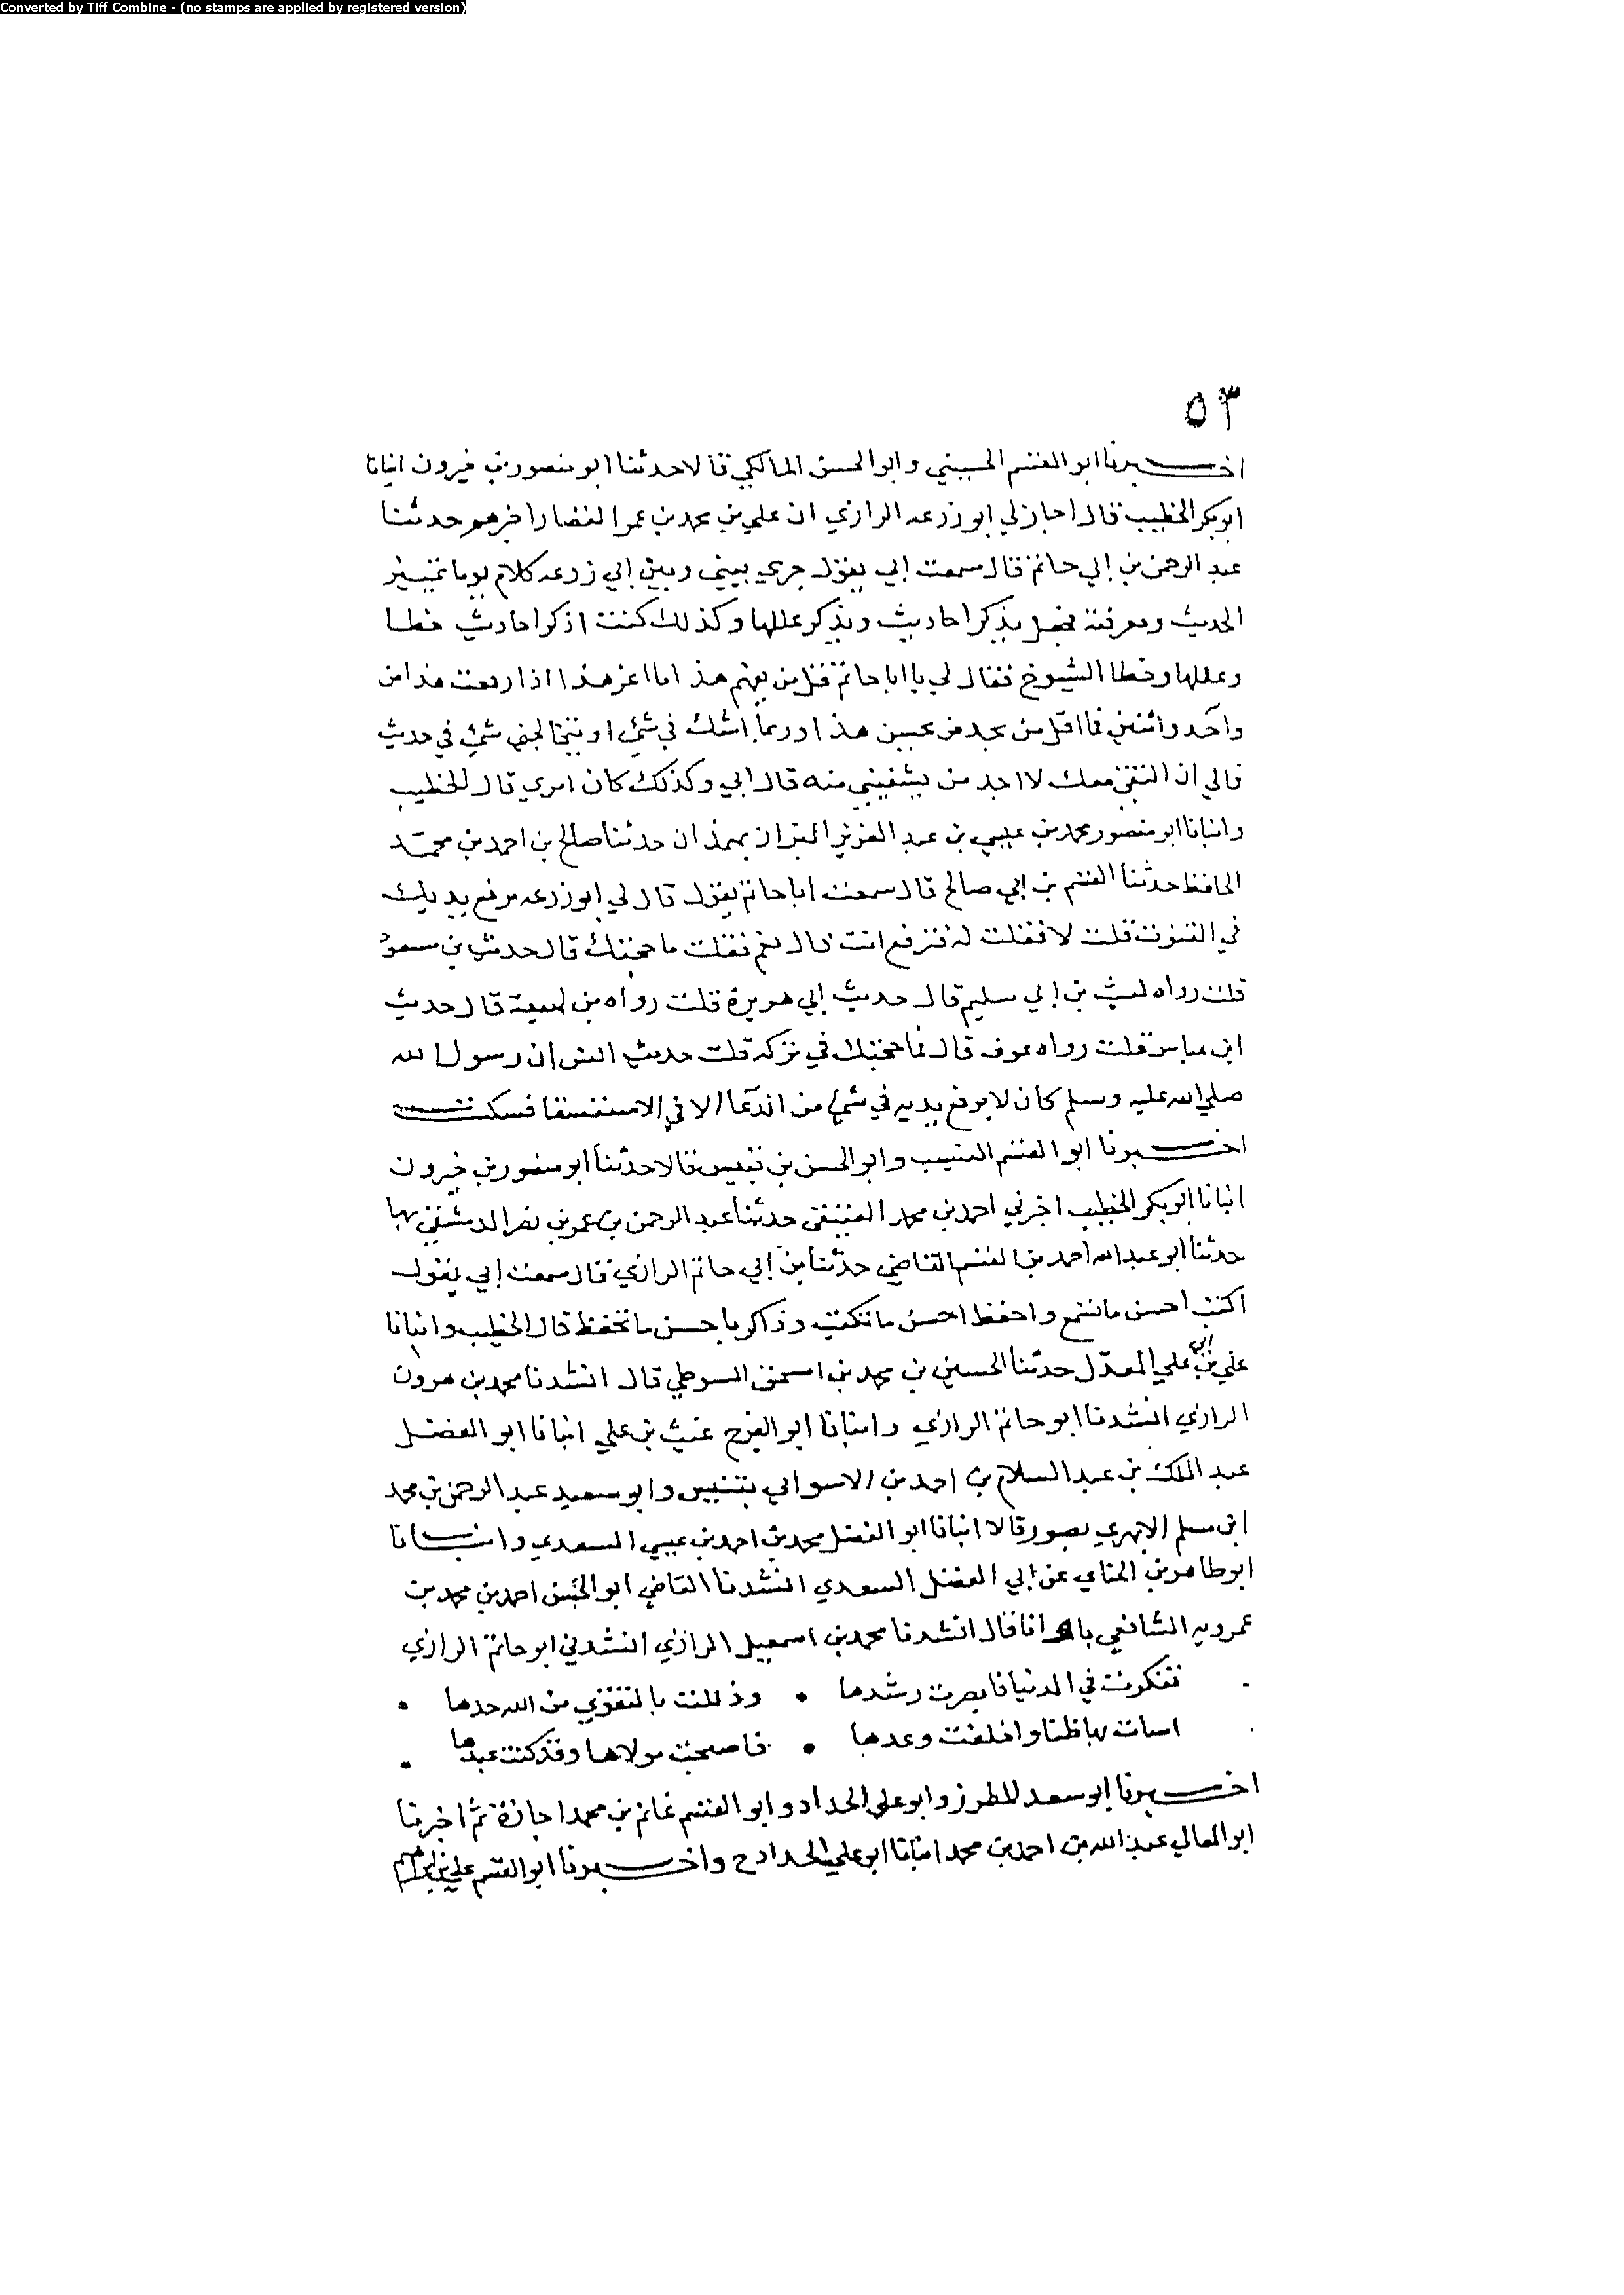 Converted by Tiff Combine - (no stamps are applied by registered version)
٥٣
اخبرنا ابو القسم الحسيني وابو الحسن المالكي قالا حدثنا ابو منصور بن خيرون انبانا
ابو بكر الخطيب قال اجاز لي ابو زرعه الرازي ان علي بن محمد بن عمر القصار اخبرهم حدثنا
عبد الرحمن بن ابي حاتم قال سمعت ابي يقول جري بيني وبين ابي زرعه كلام يوما تمييز
الحديث ومعرفته فجعل يذكر احاديث ويذكر عللها وكذلك كنت اذكر احاديث خطا
وعللها وخطا الشيوخ فقال لي يا ابا حاتم قل من يفهم هذا ما اعز هذا اذا رفعت هذا من
واحد واثنين فما اقل من يجد من يحسن هذا وربما اشك في شي او يتخالجني شي في حديث
فالي ان التقي معك لا اجد من يشفيني منه قال ابي وكذلك كان امري قال الخطيب
وانبانا ابو منصور محمد بن عيسي بن عبد العزيز البزاز بهمذان حدثنا صالح بن احمد بن محمد
الحافظ حدثنا القسم بن ابي صالح قال سمعت ابا حاتم يقول قال لي ابو زرعه ترفع يديك
في القنوت قلت لا فقلت له فترفع انت قال نعم فقلت ما حجتك قال حديث بن مسعود
قلت رواه ليث بن ابي سليم قال حديث ابي هريرة قلت رواه بن لهيعة قال حديث
ابن عباس قلت رواه عوف قال فما حجتك في تركه قلت حديث انس ان رسول الله
صلي الله عليه وسلم كان لا يرفع يديه في شي من الدعا الا في الاستسقا فسكت
اخبرنا ابو القسم النسيب وابو الحسن بن قبيس قالا حدثنا ابو منصور بن خيرون
انبانا ابو بكر الخطيب اخبرني احمد بن محمد العتيقي حدثنا عبد الرحمن بن عمر بن نصر الدمشقي بها
حدثنا ابو عبد الله احمد بن القسم القاضي حدثنا بن ابي حاتم الرازي قال سمعت ابي يقول
اكتب احسن ما تسمع واحفظ احسن ما تكتب وذاكر باحسن ما تحفظ قال الخطيب وانبانا
علي بن ابي علي المعدل حدثنا الحسين بن محمد بن اسحق السوطي قال انشدنا محمد بن هرون
الرازي انشدنا ابو حاتم الرازي وانبانا ابو الفرج غيث بن علي انبانا ابو الفضل
عبد الملك بن عبد السلام بن احمد بن الاسواني بتنيس وابو سعيد عبد الرحمن بن محمد
ابن سلم الابهري بصور قالا انبانا ابو الفضل محمد بن احمد بن عيسي السعدي وانبانا
ابو طاهر بن الحناي عن ابي الفضل السعدي انشدنا القاضي ابو الحسن احمد بن محمد بن
عمرويه الشافعي قال انشدنا محمد بن اسمعيل الرازي انشدني ابو حاتم الرازي
تفكرت في الدنيا فابصرت رشدها • وذللت بالتقوي من الله حدها •
اسات بها ظنا واخلفت وعدها • فاصبحت مولاها وقد كنت عبدها •
اخبرنا ابو سعد المطرز وابو علي الحداد وابو القسم غانم بن محمد اجازة ثم اخبرنا
ابو المعالي عبد الله بن احمد بن محمد انبانا ابو علي الحداد ح واخبرنا ابو القسم علي بن ابرهيم